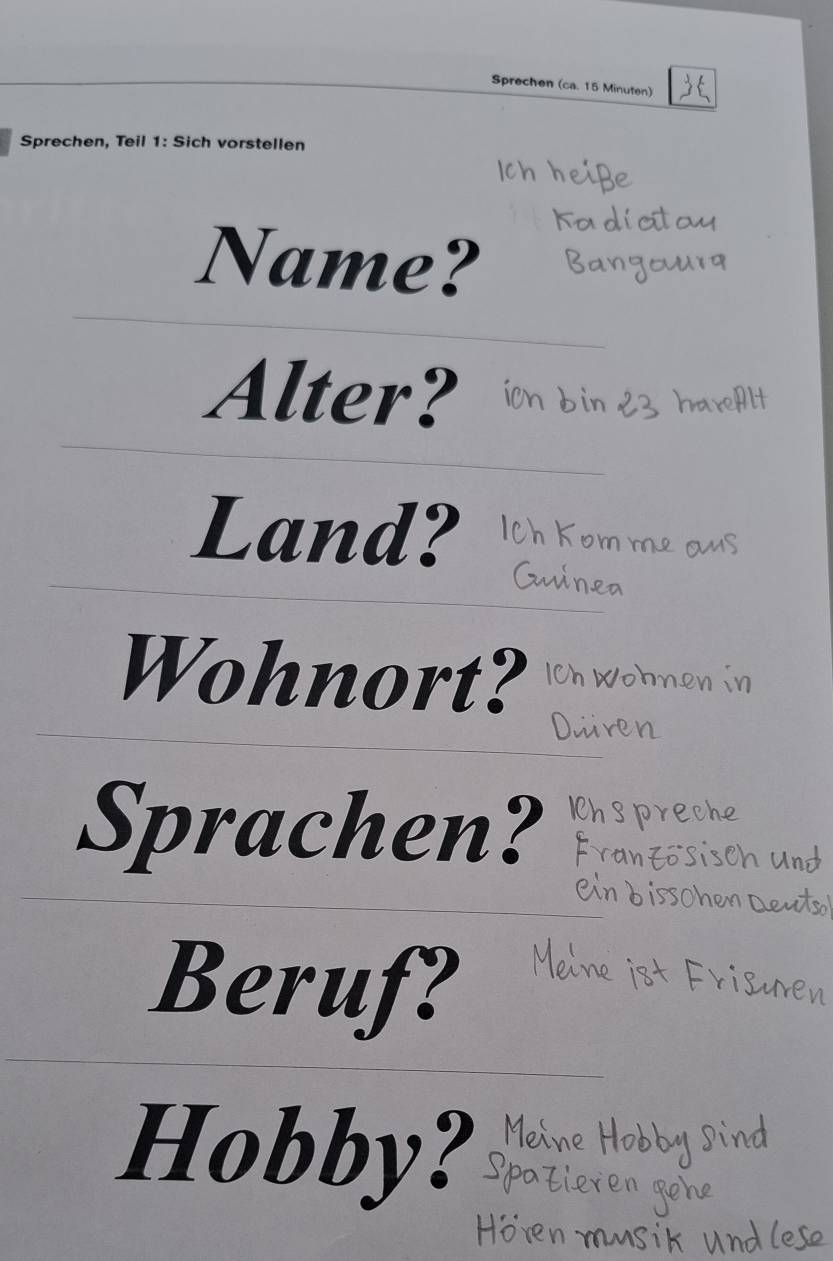 Sprechen (ca. 15 Minuten)
Sprechen, Teil 1: Sich vorstellen
Ich heiße
Kadiatau
Bangaura
Name?
Alter? ich bin 23 hareAlt
Land? Ich Komme aus
Guinea
Wohnort? Ich wohnen in
Düren
Sprachen? Ich spreche
Französisch und
ein bisschen Deutsch
Beruf? Meine ist Frisuren
Hobby? Meine Hobby sind
Spazieren gehe
Hören musik und lese